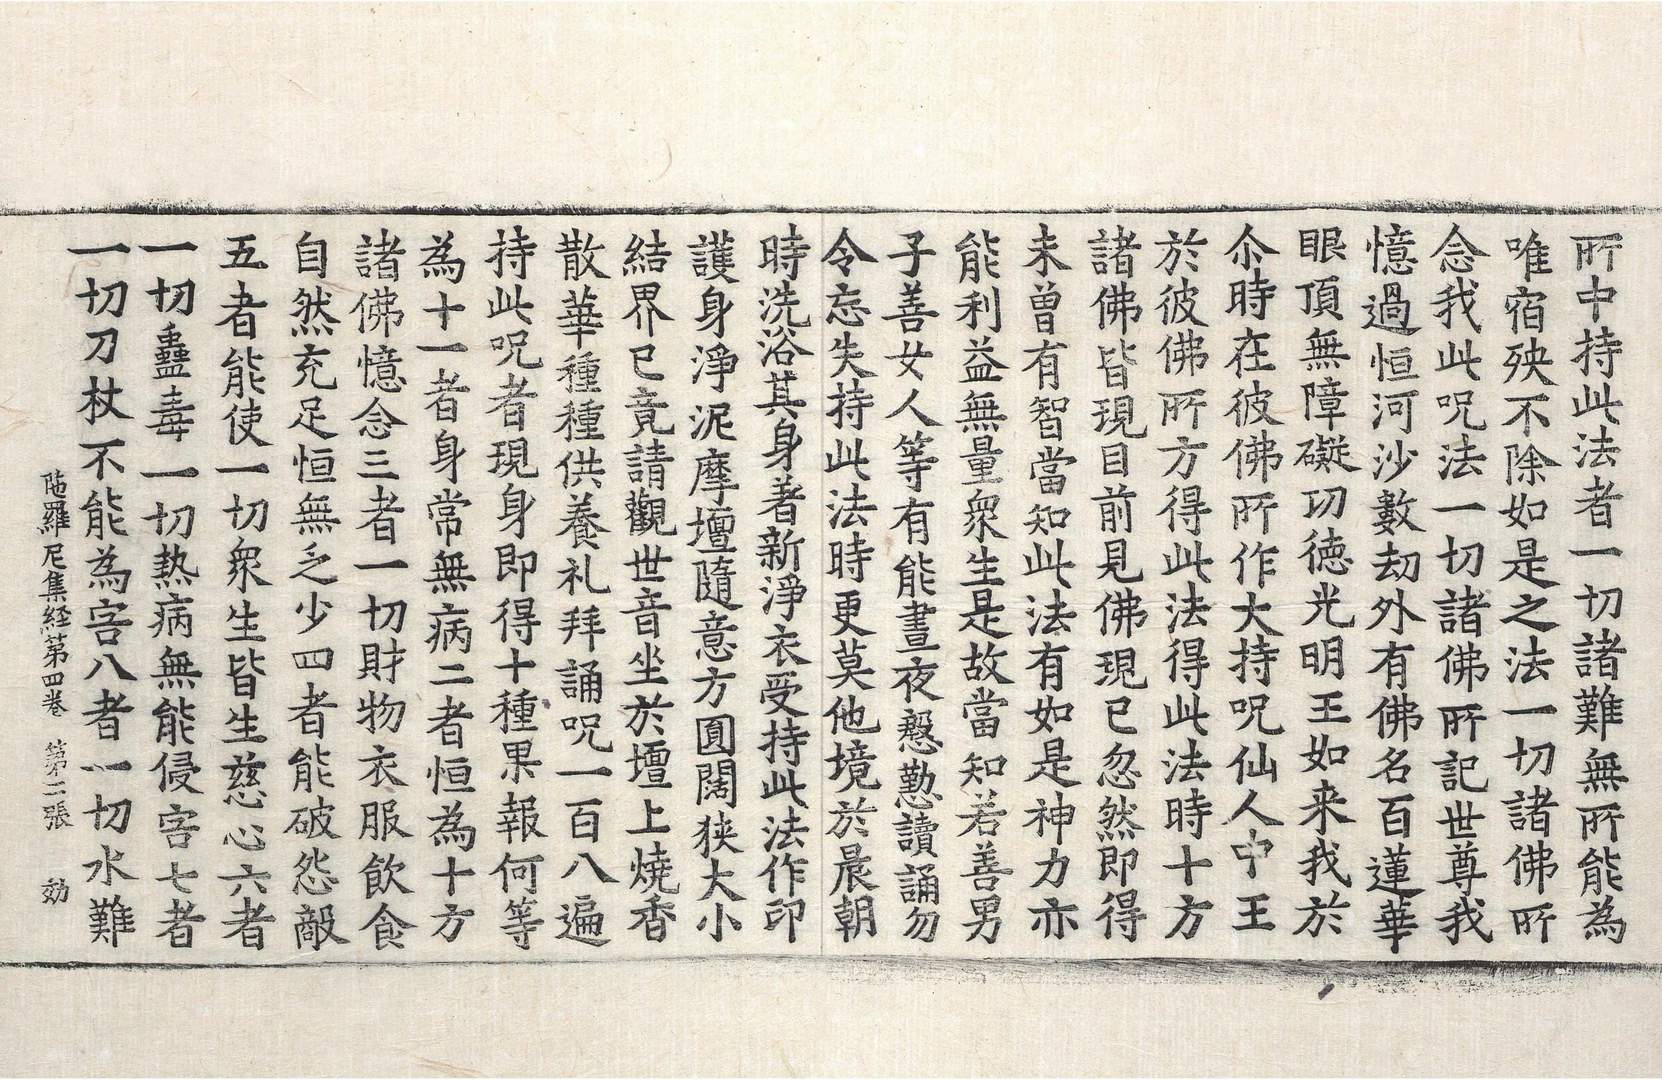 所中持此法者一切諸難無所能為
唯宿殃不除如是之法一切諸佛所
念我此呪法一切諸佛所記世尊我
憶過恒河沙數劫外有佛名百蓮華
眼頂無障礙㓛德光明王如来我於
尒時在彼佛所作大持呪仙人中王
於彼佛所方得此法得此法時十方
諸佛皆現目前見佛現已忽然即得
未曾有智當知此法有如是神力亦
能利益無量衆生是故當知若善男
子善女人等有能晝夜慇懃讀誦勿
令忘失持此法時更莫他境於晨朝
時洗浴其身著新淨衣受持此法作印
護身淨泥摩壇隨意方圓闊狹大小
結界已竟請觀世音坐於壇上燒香
散華種種供養礼拜誦呪一百八遍
持此呪者現身即得十種果報何等
為十一者身常無病二者恒為十方
諸佛憶念三者一切財物衣服飲食
自然充足恒無乏少四者能破怨敵
五者能使一切衆生皆生慈心六者
一切蠱毒一切熱病無能侵害七者
一切刀杖不能為害八者一切水難
陁羅尼集経第四卷 第二張 効